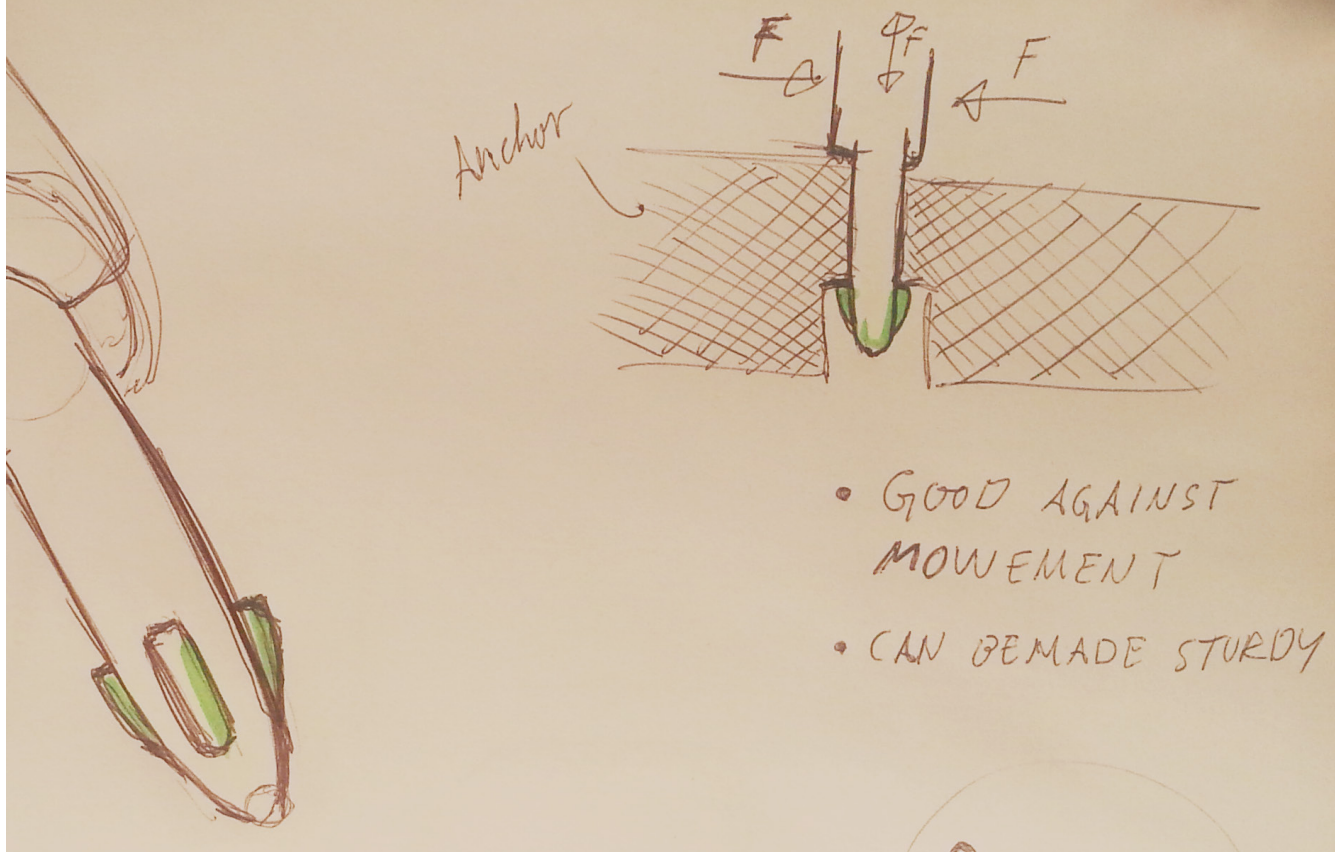 F
F
F
Anchor
• GOOD AGAINST
MOWEMENT
• CAN BE MADE STURDY